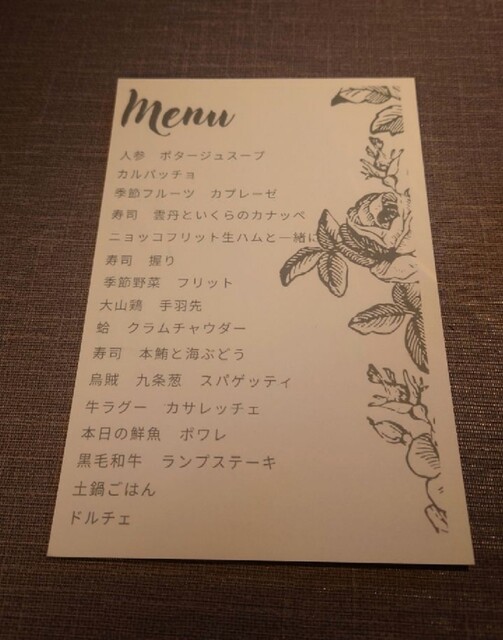 Menu
人参　ポタージュスープ
カルパッチョ
季節フルーツ　カプレーゼ
寿司　雲丹といくらのカナッペ
ニョッコフリット生ハムと一緒に
寿司　握り
季節野菜　フリット
大山鶏　手羽先
蛤　クラムチャウダー
寿司　本鮪と海ぶどう
烏賊　九条葱　スパゲッティ
牛ラグー　カサレッチェ
本日の鮮魚　ポワレ
黒毛和牛　ランプステーキ
土鍋ごはん
ドルチェ